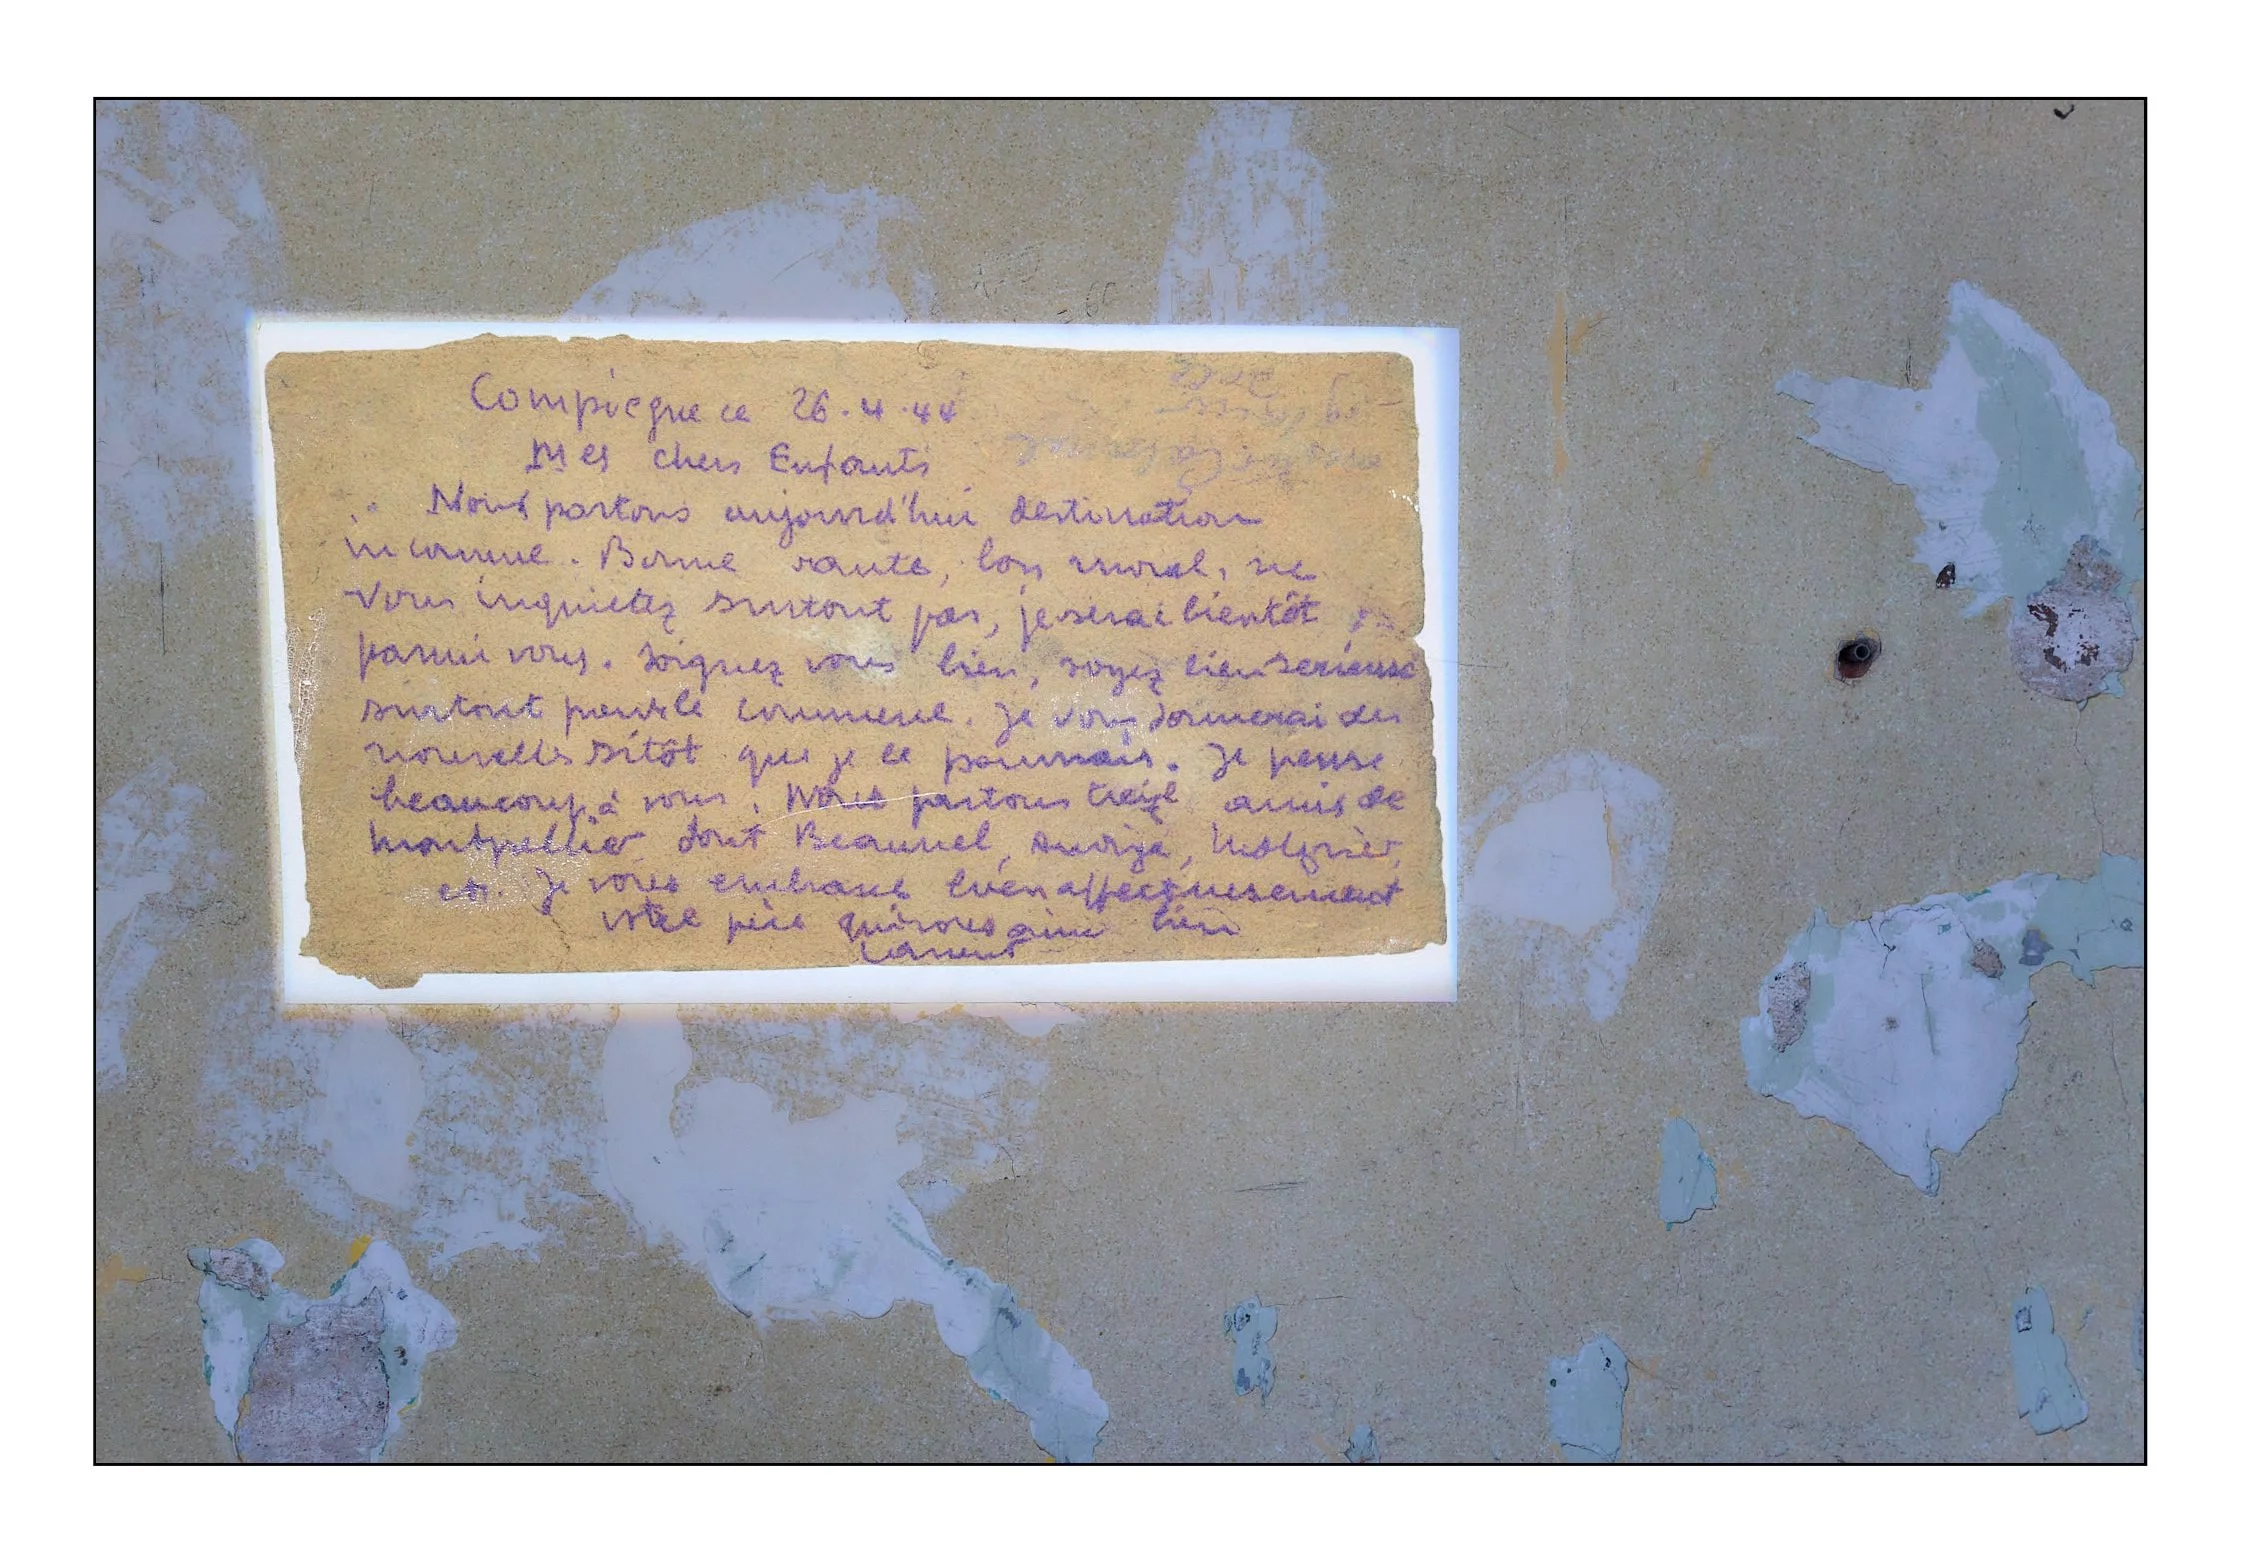 Compiègne ce 26.4.44
Mes chers Enfants
Nous partons aujourd'hui destination
inconnue. Bonne santé, bon moral, ne
vous inquietez surtout pas, je serai bientôt
parmi vous. Soignez vous bien, soyez bien serieuse
surtout pour le commerce. Je vous donnerai des
nouvelles sitôt que je le pourrais. Je pense
beaucoup à vous. Nous partons treize amis de
montpellier dont Beaumel,
etc. Je vous embrasse bien affectueusement
votre père qui vous aime bien